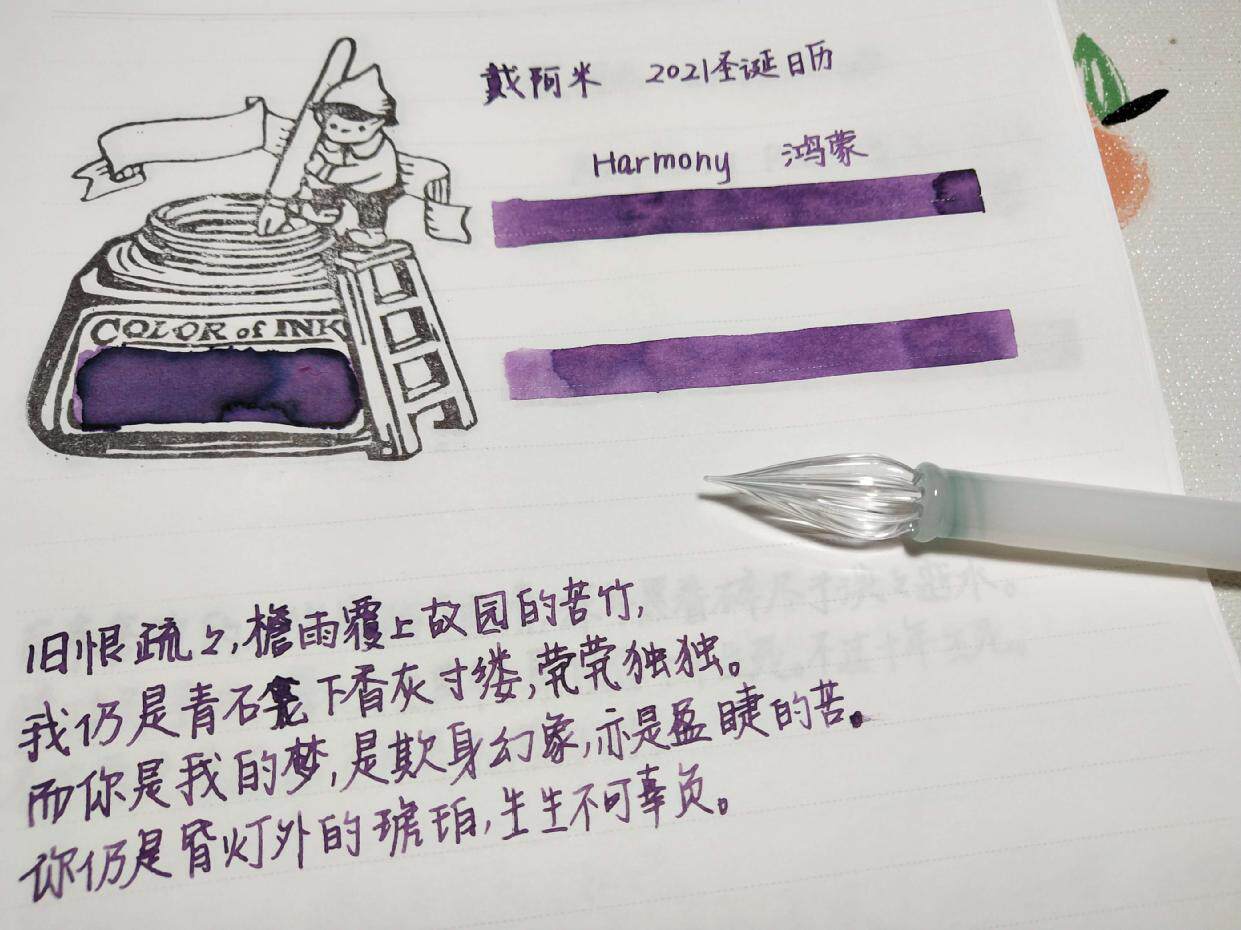 戴阿米 2021圣诞日历
Harmony 鸿蒙
COLOR of INK
旧恨疏々,檐雨覆上故园的苦竹,
我仍是青石龛下香灰寸缕,茕茕独独。
而你是我的梦,是欺身幻象,亦是盈睫的苦。
你仍是昏灯外的琥珀,生生不可辜负。